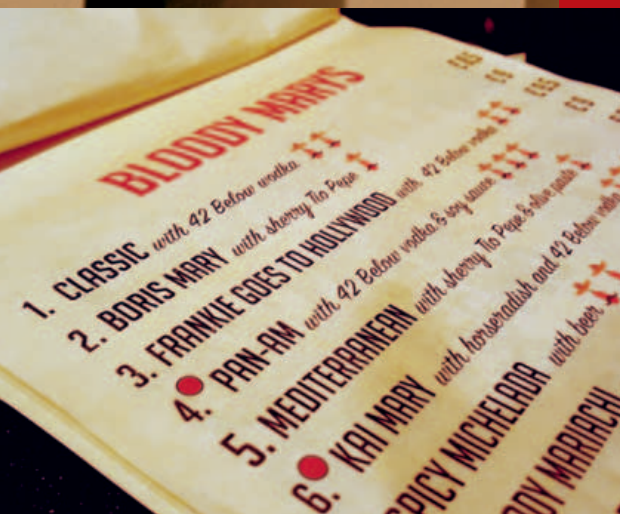 BLOODY MARYS
1. CLASSIC with 42 Below vodka
2. BORIS MARY with sherry Tio Pepe
3. FRANKIE GOES TO HOLLYWOOD with 42 Below vodka
4. PAN-AM with 42 Below vodka & soy sauce
5. MEDITERRANEAN with sherry Tio Pepe & olive paste
6. KAI MARY with horseradish and 42 Below vodka
SPICY MICHELADA with beer
MARIACHI